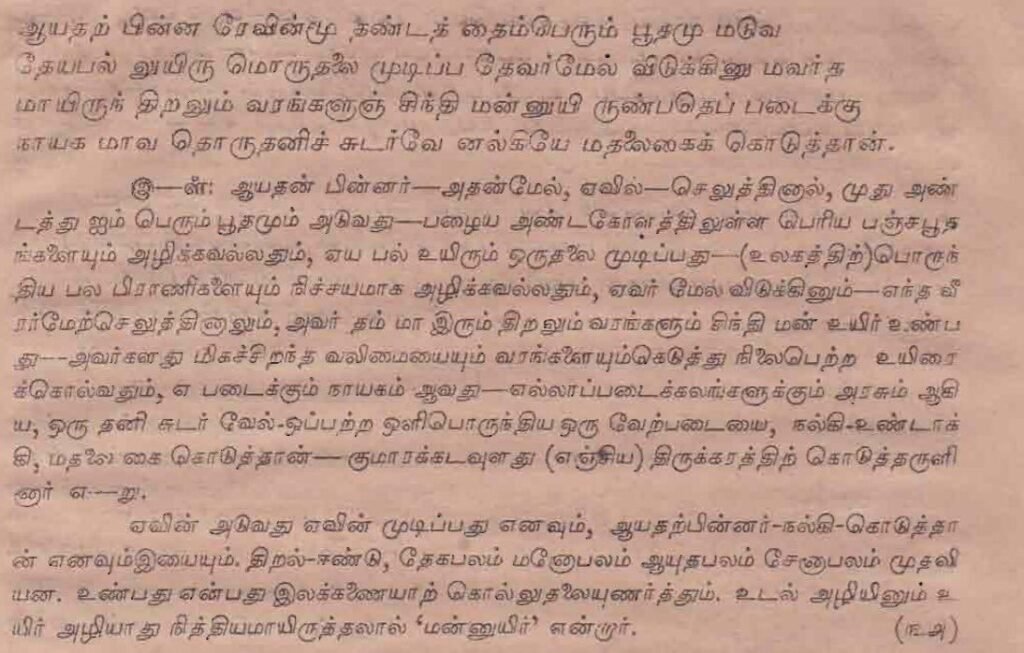 ஆயதற் பின்ன ரேவின்மூ தண்டத் தைம்பெரும் பூதமு மடுவ
தேயபல் லுயிரு மொருதலை முடிப்ப தேவர்மேல் விடுக்கினு மவர்த
மாயிருந் திறலும் வரங்களுஞ் சிந்தி மன்னுயி ருண்பதெப் படைக்கு
நாயக மாவ தொருதனிச் சுடர்வே னல்கியே மதலைகைக் கொடுத்தான்.
இ—ள்: ஆயதன் பின்னர்—அதன்மேல், ஏவில்—செலுத்தினால், முது அண்
டத்து ஐம் பெரும் பூதமும் அடுவது—பழைய அண்டகோளத்திலுள்ள பெரிய பஞ்சபூத
ங்களையும் அழிக்கவல்லதும், ஏய பல் உயிரும் ஒருதலை முடிப்பது—(உலகத்திற்)பொருந்
திய பல பிராணிகளையும் நிச்சயமாக அழிக்கவல்லதும், ஏவர் மேல் விடுக்கினும்—எந்த வீ
ரர்மேற்செலுத்தினாலும், அவர் தம் மா இரும் திறலும் வரங்களும் சிந்தி மன் உயிர் உண்ப
து—அவர்களது மிகச்சிறந்த வலிமையையும் வரங்களையும்கெடுத்து நிலைபெற்ற உயிரை
க்கொல்வதும், எ படைக்கும் நாயகம் ஆவது—எல்லாப்படைக்கலங்களுக்கும் அரசும் ஆகி
ய, ஒரு தனி சுடர் வேல்-ஒப்பற்ற ஒளிபொருந்திய ஒரு வேற்படையை, நல்கி-உண்டாக்
கி, மதலை கை கொடுத்தான்—குமாரக்கடவுளது (எஞ்சிய) திருக்கரத்திற் கொடுத்தருளி
னார் எ—று.
ஏவின் அடுவது ஏவின் முடிப்பது எனவும், ஆயதற்பின்னர்-நல்கி-கொடுத்தா
ன் எனவும்இயையும். திறல்-ஈண்டு, தேகபலம் மனோபலம் ஆயுதபலம் சேனாபலம் முதலி
யன. உண்பது என்பது இலக்கணையாற் கொல்லுதலையுணர்த்தும். உடல் அழியினும் உ
யிர் அழியாது நித்தியமாயிருத்தலால் ‘மன்னுயிர்’ என்றார். (௩அ)